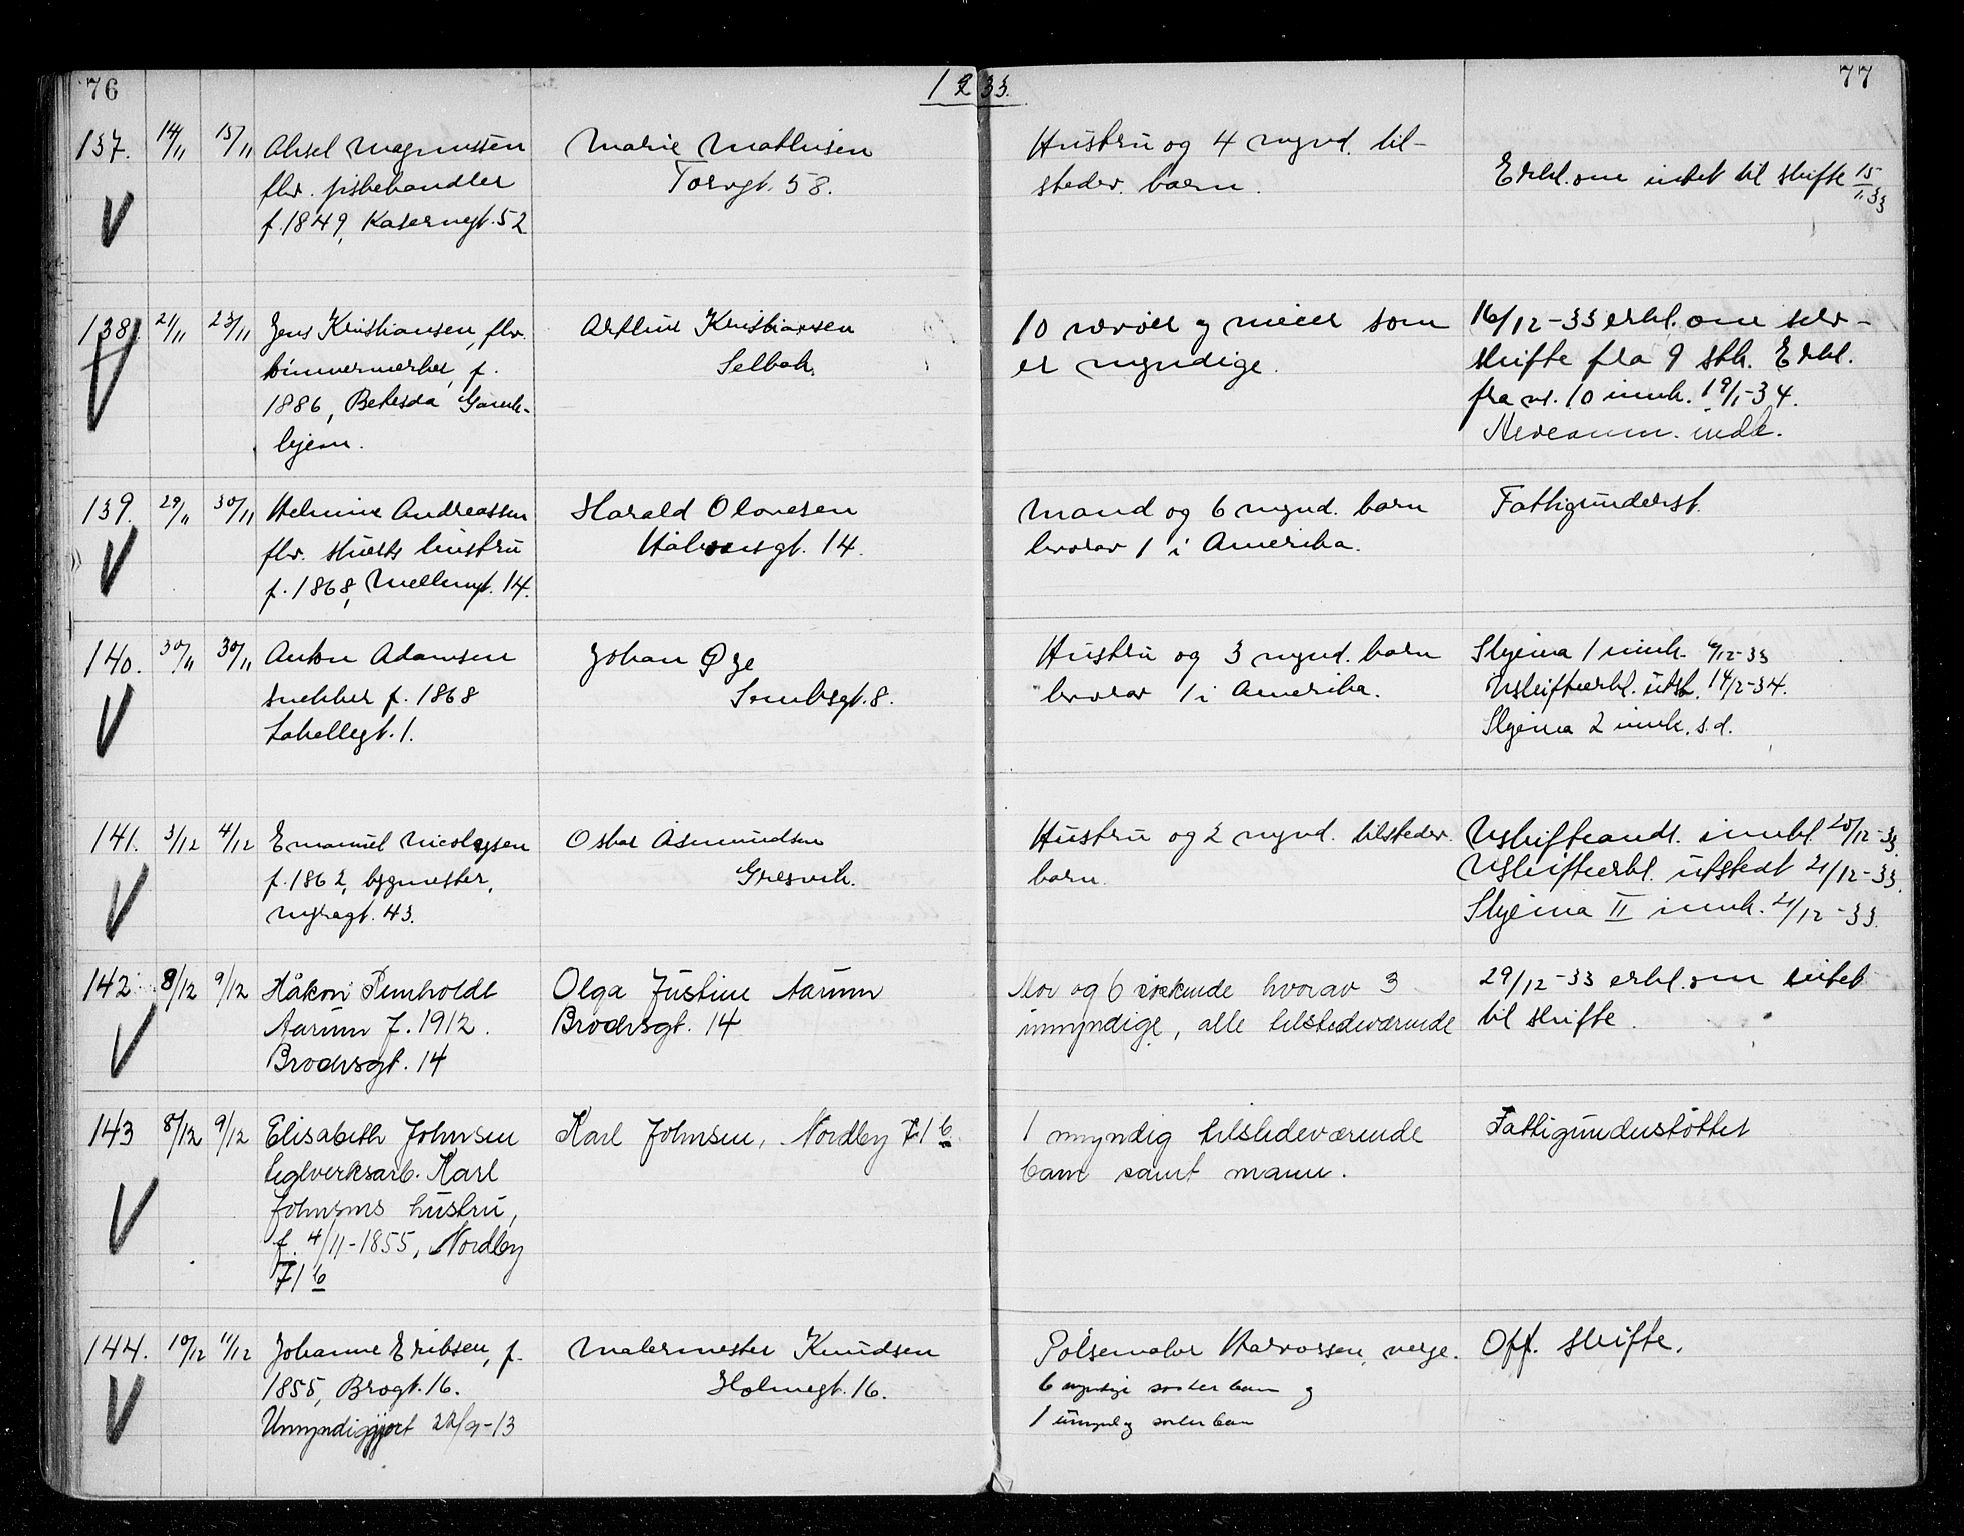 76
1933.
77
137. 14/11 15/11 Aksel Magnussen Marie Mathisen Hustru og 4 mynd. til-
fhv. fiskehandler Torvgt. 58. stedev. barn. Erkl. om intet til skifte 15/11 33
f. 1849, Kaserngt. 52
138. 21/11 23/11 Jens Kristiansen, fhv. Arthur Kristiansen 10 nevøer og nieser som 16/12-33 erkl. om selv-
tømmermerker, f. Selbak. er myndige. skifte fra 9 stk. Erkl.
1886, Betesda Gamle- fra nr. 10 innk. 19/1-34.
hjem. indk.
139. 29/11 30/11 Helmine Andreassen Harald Olavesen Mand og 6 mynd. barn Fattigunderst.
fhv. hustru Halvorsgt. 14. hvorav 1 i Amerika.
f. 1868, Mellemgt. 14.
140. 30/11 30/11 Anton Adamsen Johan Øye Hustru og 3 mynd. barn Skjema 1 innk. 6/12-33
snekker f. 1868 8. hvorav 1 i Amerika. Uskifteerkl. utst. 14/2-34.
Labellegt. 1. Skjema 2 innk. s.d.
141. 3/12 4/12 Emanuel Nicolaysen Oskar Asmundsen Hustru og 2 mynd. tilstedev. Uskifteandr. innkl 20/12-33
f. 1862, bygmester, Gresvik. barn. Uskifteerkl. utstedt 21/12-33.
Myragt. 43. Skjema II innk. 21/12-33.
142. 8/12 9/12 Håkon Reinholdt Olga Justine Aarum Mor og 6 søskende hvorav 3 29/12-33 erkl. om intet
Aarum f. 1912. Brochsgt. 14 umyndige, alle tilstedeværende til skifte.
Brochsgt. 14
143 8/12 9/12 Elisabeth Johnsen Karl Johnsen, Nordby 71 b. 1 myndig tilstedeværende Fattigunderstøttet
teglverksarb. Karl barn samt mann.
Johnsens hustru,
f. 4/11-1855, Nordby
71 b
144. 10/12 11/12 Johanne Eriksen, f. Malermester Knudsen Pølsemaker Halvorsen, verge. Off. skifte.
1855, Brogt. 16. Holmegt. 16. 6 myndige søsterbarn og
Umyndiggjort 22/9-13 1 umyndig søsterbarn